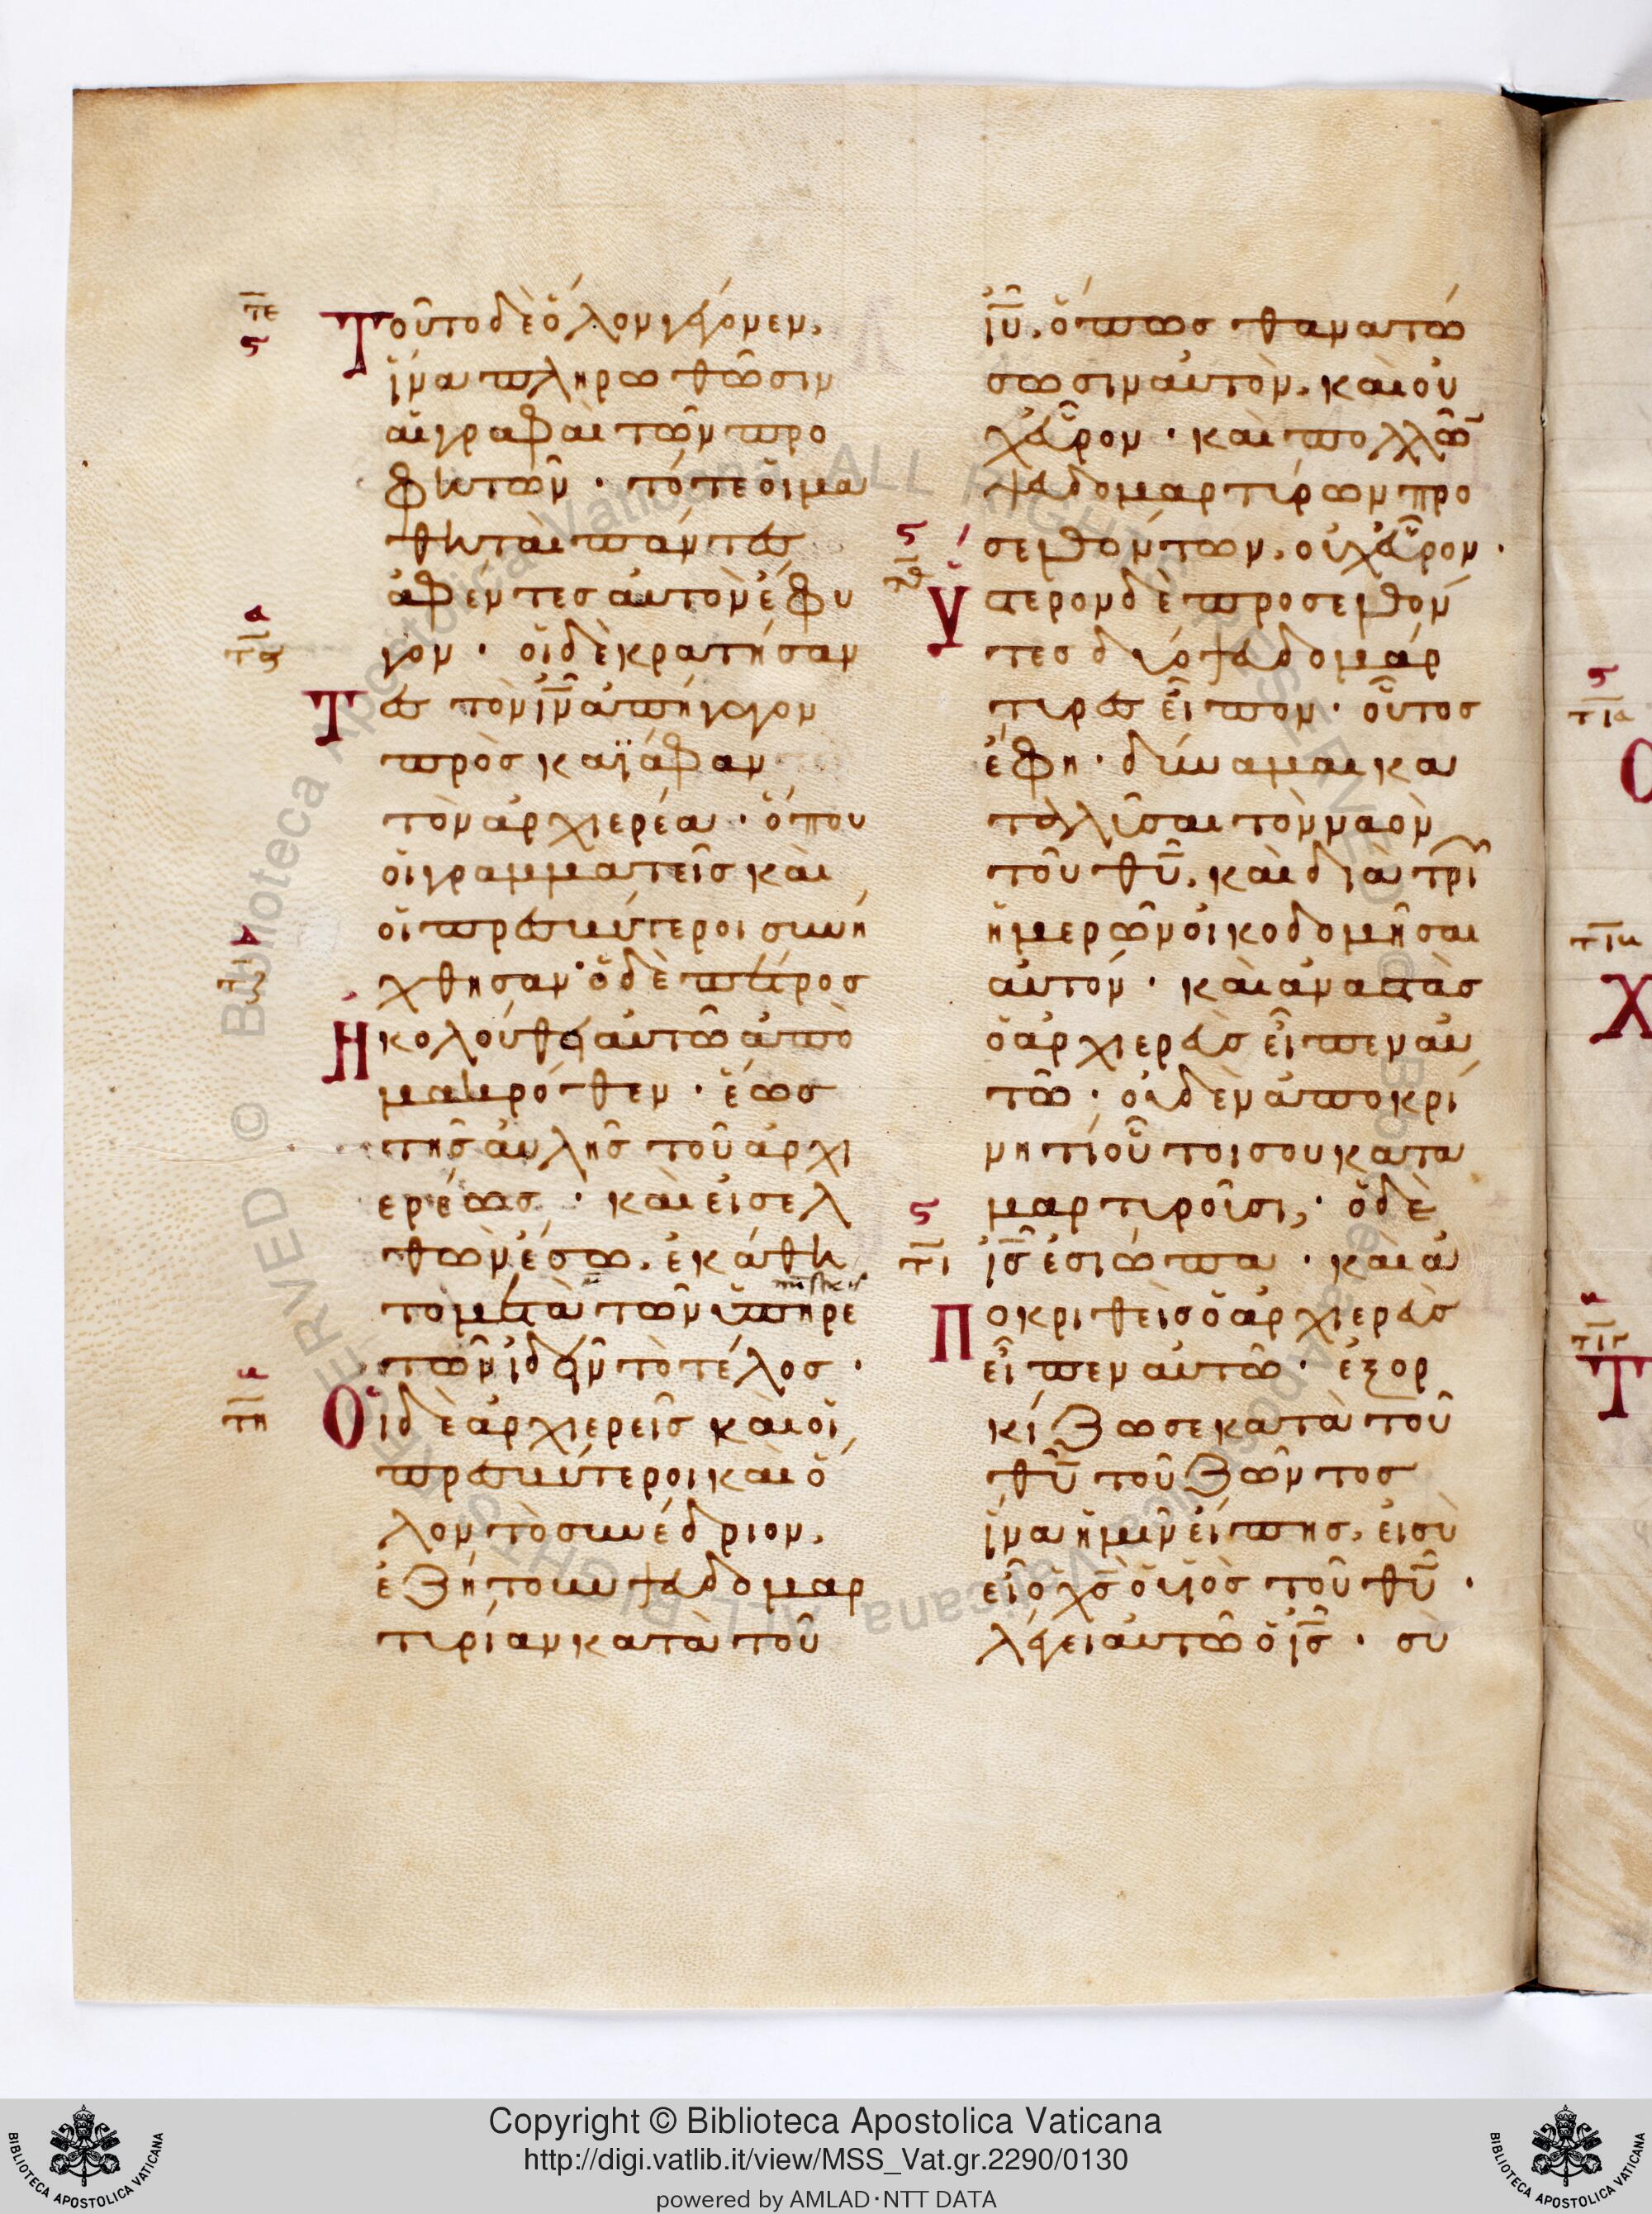 τε
ς
Τοῦτο δὲ ὅλον γέγονεν,
ἵνα πληρωθῶσιν
αἱ γραφαὶ τῶν προ
φητῶν · τότε οἱ μα
θηταὶ πάντες
ἀφέντες αὐτὸν ἔφυ
α
τς
γον · οἱ δὲ κρατήσαν
Τες τὸν ἰν̅ ἀπήγαγον
πρὸς καϊάφαν
τὸν ἀρχιερέα · ὅπου
οἱ γραμματεῖς καὶ
οἱ πρεσβύτεροι συνή
χθησαν · ὁ δὲ πέτρος
Ἠκολούθει αὐτῷ ἀπὸ
μακρόθεν · ἕως
τῆς αὐλῆς τοῦ ἀρχι
ερέως · καὶ εἰσελ
θὼν ἔσω, ἐκάθη
το μετὰ τῶν ὑπηρε
τῶν ἰδεῖν τὸ τέλος ·
τη
Οἱ δὲ ἀρχιερεῖς καὶ οἱ
πρεσβύτεροι καὶ ὅ
λον τὸ συνέδριον,
ἐζήτουν ψευδομαρ
τυρίαν κατὰ τοῦ
ἰυ̅, ὅπως θανατώ
σωσιν αὐτὸν, καὶ οὐ
χεῦρον · καὶ πολλῶ̅
ψευδομαρτύρων προ
ς
τθ
σελθόντων, οὐχεῦρον ·
Ὕστερον δὲ προσελθόν
τες δύο ψευδομάρ
τυρες εἶπον · οὗτος
ἔφη · δύναμαι κα
ταλῦσαι τὸν ναὸν
τοῦ θυ̅, καὶ διὰ τρι
ἡμερῶν οἰκοδομῆσαι
αὐτόν · καὶ ἀναστὰς
ὁ ἀρχιερεὺς εἶπεν αὐ
τῷ · οὐδὲν ἀποκρί
νη τί οὗτοι σου κατα
μαρτυροῦσι; · ὁ δὲ
ς
τι
ἰς̅ ἐσιώπα · καὶ ἀ
Ποκριθεὶς ὁ ἀρχιερεὺς
εἶπεν αὐτῷ · ἐξορ
κίζω σε κατὰ τοῦ
θυ̅ τοῦ ζῶντος
ἵνα ἡμῖν εἴπης, εἰ σὺ
εἶ ὁ χς̅ ὁ υἱὸς τοῦ θυ̅ ·
λέγει αὐτῷ ὁ ἰς̅ · σὺ
ς
τια
τιβ
Χ
τιγ
Τ
Copyright © Biblioteca Apostolica Vaticana
http://digi.vatlib.it/view/MSS_Vat.gr.2290/0130
powered by AMLAD·NTT DATA
BIBLIOTECA APOSTOLICA VATICANA
BIBLIOTECA APOSTOLICA VATICANA